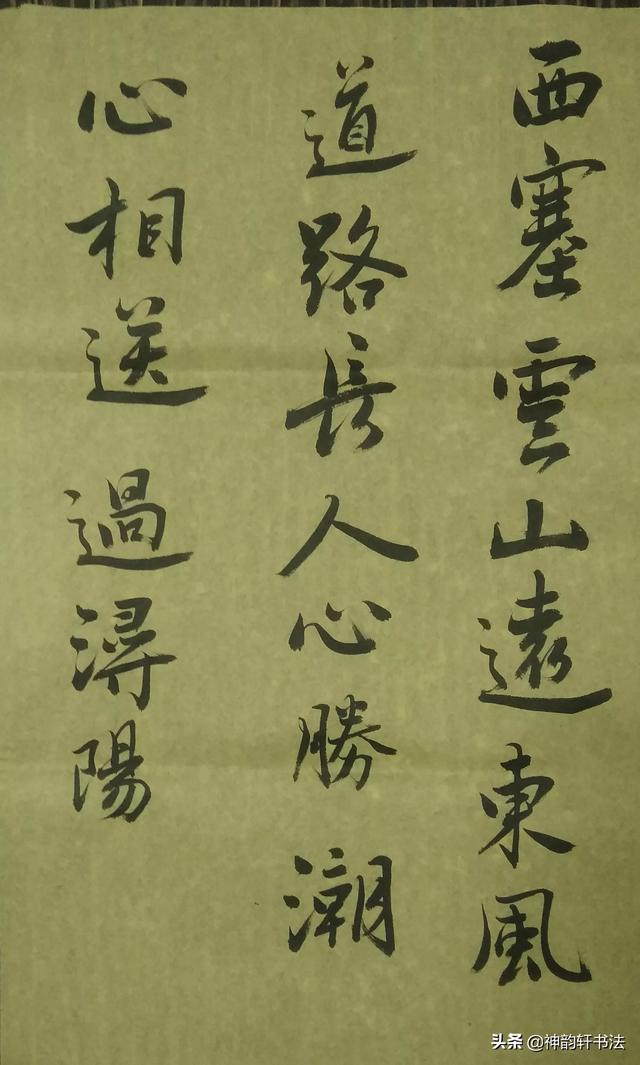 西塞雲山遠東風
道路長人心勝潮
心相送過潯陽
头条 @神韵轩书法